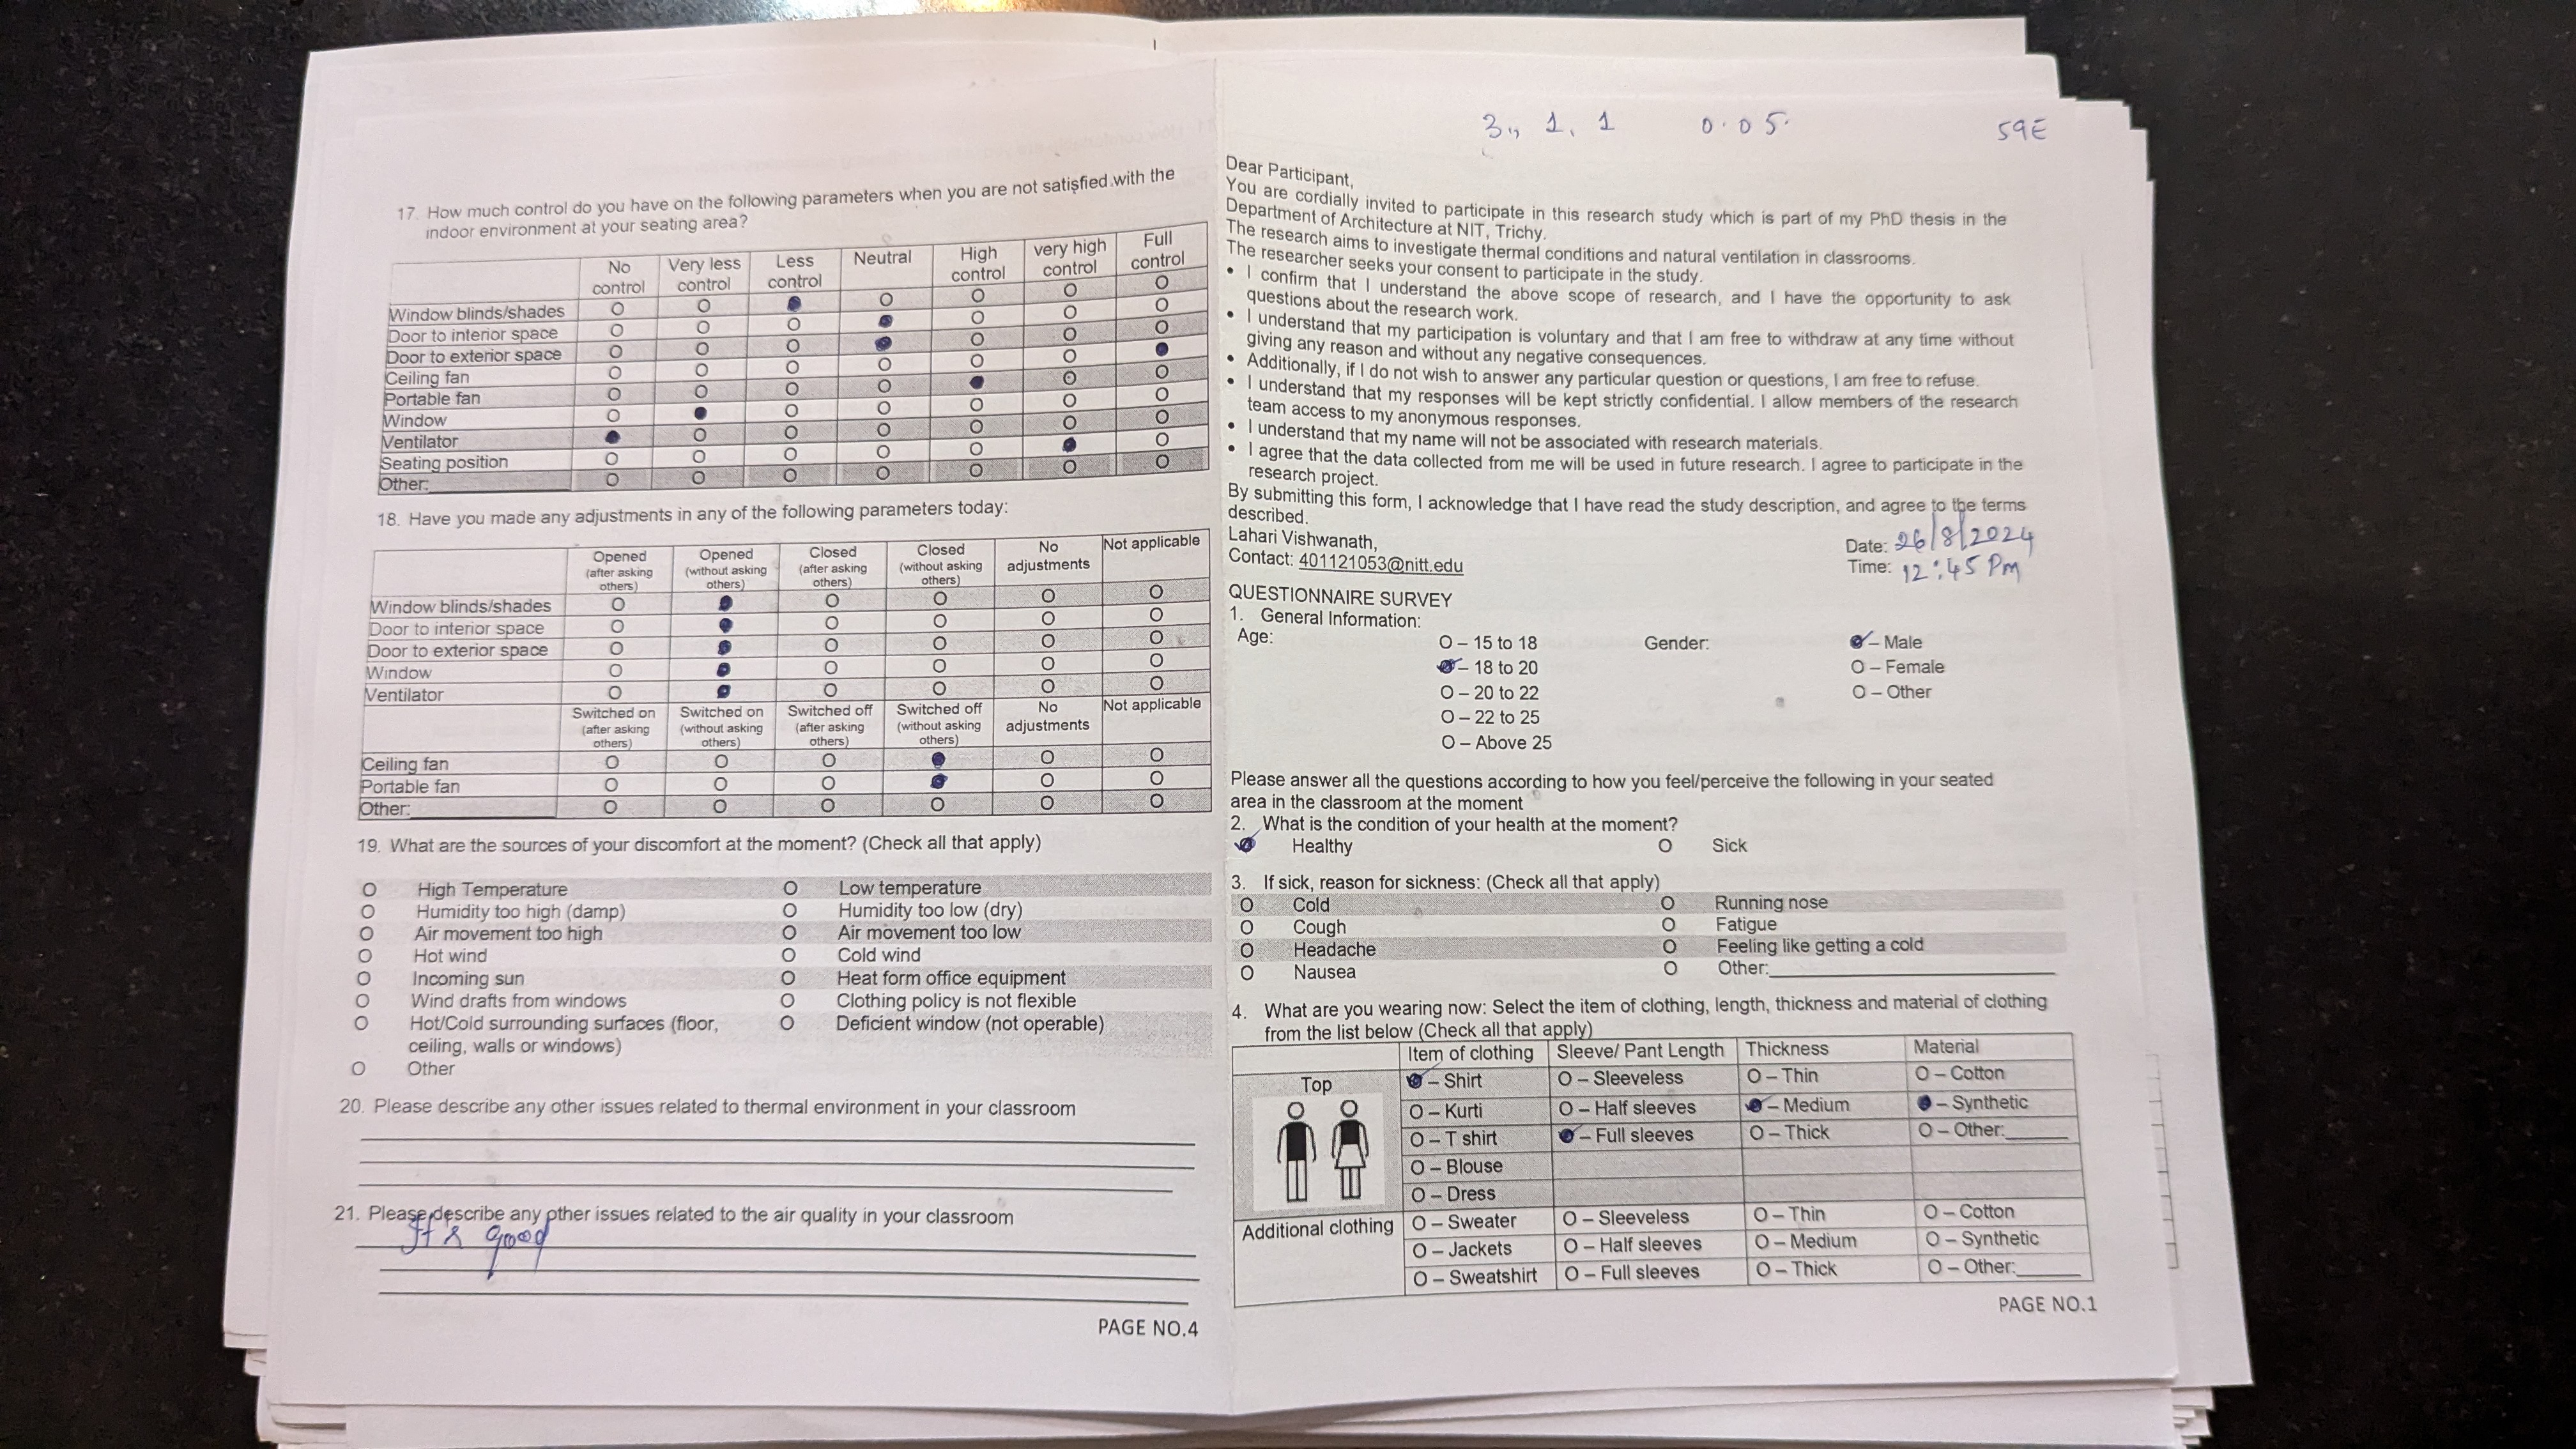 17. How much control do you have on the following parameters when you are not satisfied with the
indoor environment at your seating area?
No control Very less control Less control Neutral High control very high control Full control
Window blinds/shades O O ● O O O O
Door to interior space O O O ● O O O
Door to exterior space O O O ● O O O
Ceiling fan O O O O O O ●
Portable fan O O O O ● O O
Window O ● O O O O O
Ventilator ● O O O O O O
Seating position O O O O O ● O
Other:________ O O O O O O O
18. Have you made any adjustments in any of the following parameters today:
Opened (after asking others) Opened (without asking others) Closed (after asking others) Closed (without asking others) No adjustments Not applicable
Window blinds/shades O ● O O O O
Door to interior space O ● O O O O
Door to exterior space O ● O O O O
Window O ● O O O O
Ventilator O ● O O O O
Switched on (after asking others) Switched on (without asking others) Switched off (after asking others) Switched off (without asking others) No adjustments Not applicable
Ceiling fan O O O ● O O
Portable fan O O O ● O O
Other:________ O O O O O O
19. What are the sources of your discomfort at the moment? (Check all that apply)
O High Temperature O Low temperature
O Humidity too high (damp) O Humidity too low (dry)
O Air movement too high O Air movement too low
O Hot wind O Cold wind
O Incoming sun O Heat form office equipment
O Wind drafts from windows O Clothing policy is not flexible
O Hot/Cold surrounding surfaces (floor, O Deficient window (not operable)
ceiling, walls or windows)
O Other
20. Please describe any other issues related to thermal environment in your classroom
21. Please describe any other issues related to the air quality in your classroom
It's good
PAGE NO.4
3., 1, 1 0.05. 59E
Dear Participant,
You are cordially invited to participate in this research study which is part of my PhD thesis in the
Department of Architecture at NIT, Trichy.
The research aims to investigate thermal conditions and natural ventilation in classrooms.
The researcher seeks your consent to participate in the study.
• I confirm that I understand the above scope of research, and I have the opportunity to ask
questions about the research work.
• I understand that my participation is voluntary and that I am free to withdraw at any time without
giving any reason and without any negative consequences.
• Additionally, if I do not wish to answer any particular question or questions, I am free to refuse.
• I understand that my responses will be kept strictly confidential. I allow members of the research
team access to my anonymous responses.
• I understand that my name will not be associated with research materials.
• I agree that the data collected from me will be used in future research. I agree to participate in the
research project.
By submitting this form, I acknowledge that I have read the study description, and agree to the terms
described.
Lahari Vishwanath,
Contact: 401121053@nitt.edu
Date: 26/8/2024
Time: 12:45 Pm
QUESTIONNAIRE SURVEY
1. General Information:
Age: O – 15 to 18 Gender: ● – Male
● – 18 to 20 O – Female
O – 20 to 22 O – Other
O – 22 to 25
O – Above 25
Please answer all the questions according to how you feel/perceive the following in your seated
area in the classroom at the moment
2. What is the condition of your health at the moment?
● Healthy O Sick
3. If sick, reason for sickness: (Check all that apply)
O Cold O Running nose
O Cough O Fatigue
O Headache O Feeling like getting a cold
O Nausea O Other:________
4. What are you wearing now: Select the item of clothing, length, thickness and material of clothing
from the list below (Check all that apply)
Item of clothing Sleeve/ Pant Length Thickness Material
Top ● – Shirt O – Sleeveless O – Thin O – Cotton
O – Kurti O – Half sleeves ● – Medium ● – Synthetic
O – T shirt ● – Full sleeves O – Thick O – Other:______
O – Blouse
O – Dress
Additional clothing O – Sweater O – Sleeveless O – Thin O – Cotton
O – Jackets O – Half sleeves O – Medium O – Synthetic
O – Sweatshirt O – Full sleeves O – Thick O – Other:______
PAGE NO.1